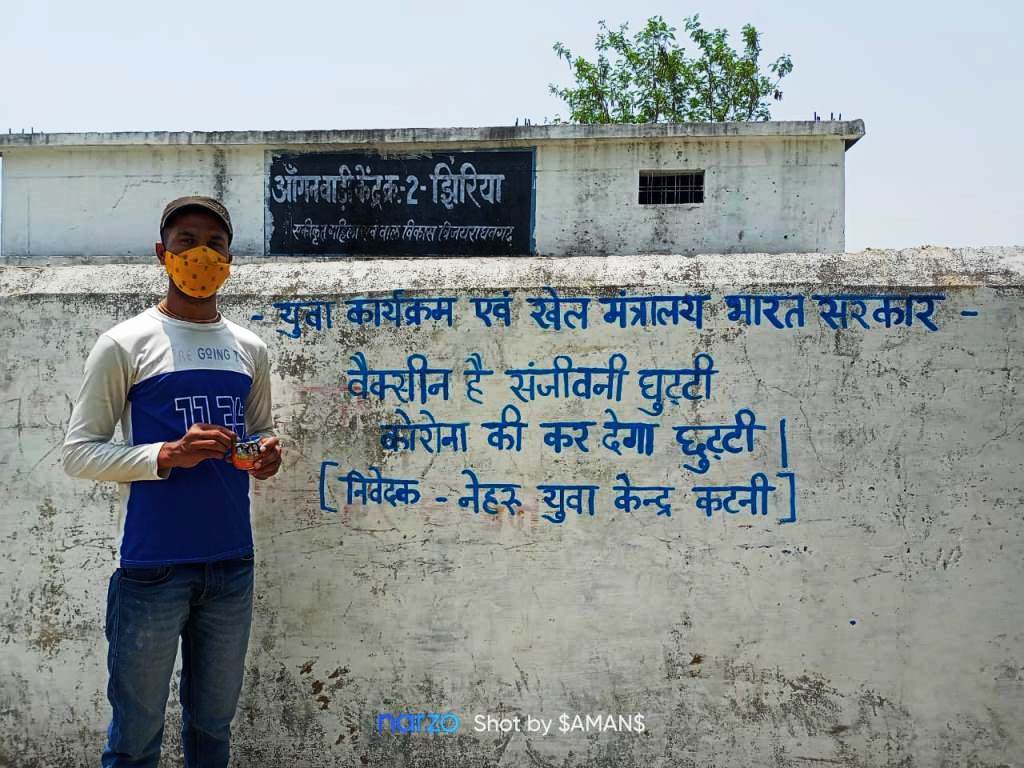 आँगनवाडी केंद्र क्र:-2- झिंरिया
एकीकृत महिला एवं वाल विकास विजयराघवगढ़
- युवा कार्यक्रम एवं खेल मंत्रालय भारत सरकार -
वैक्सीन है संजीवनी घुट्टी
कोरोना की कर देगा छुट्टी |
[ निवेदक - नेहरू युवा केन्द्र कटनी ]
GOING T
11 24
narzo Shot by $AMAN$